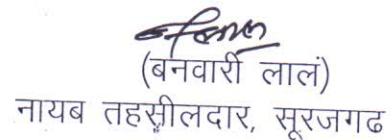 (बनवारी लाल)
नायब तहसीलदार, सूरजगढ